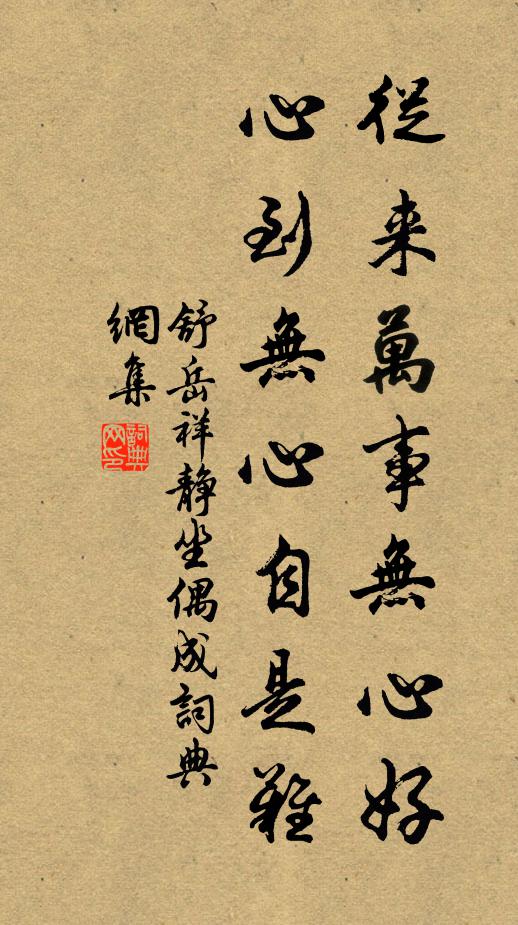 從来萬事無心好
心到無心自是難
舒岳祥静坐偶成詞典
網集
詞典
网印